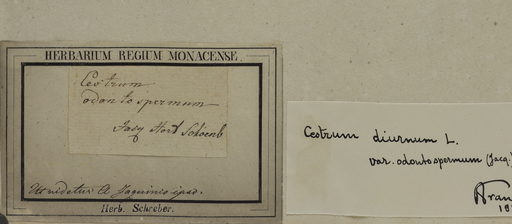 HERBARIUM REGIUM MONACENSE.
Cestrum
odontospermum
Jacq Hort Schoenb
Ut videtur a Jaquinio ipso.
Herb. Schreber.
Cestrum diurnum L.
var. odontospermum (Jacq.)
Fran